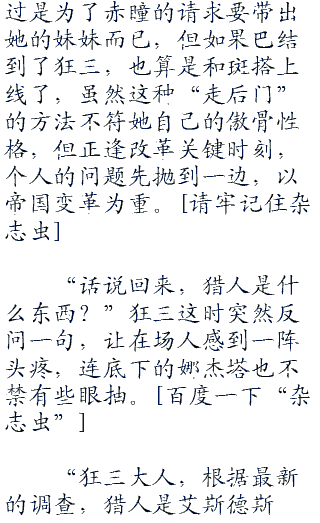 过是为了赤瞳的请求要带出
她的妹妹而已，但如果巴结
到了狂三，也算是和斑搭上
线了，虽然这种“走后门”
的方法不符她自己的傲骨性
格，但正逢改革关键时刻，
个人的问题先抛到一边，以
帝国变革为重。[请牢记住杂
志虫]
“话说回来，猎人是什
么东西？”狂三这时突然反
问一句，让在场人感到一阵
头疼，连底下的娜杰塔也不
禁有些眼抽。[百度一下“杂
志虫”]
“狂三大人，根据最新
的调查，猎人是艾斯德斯